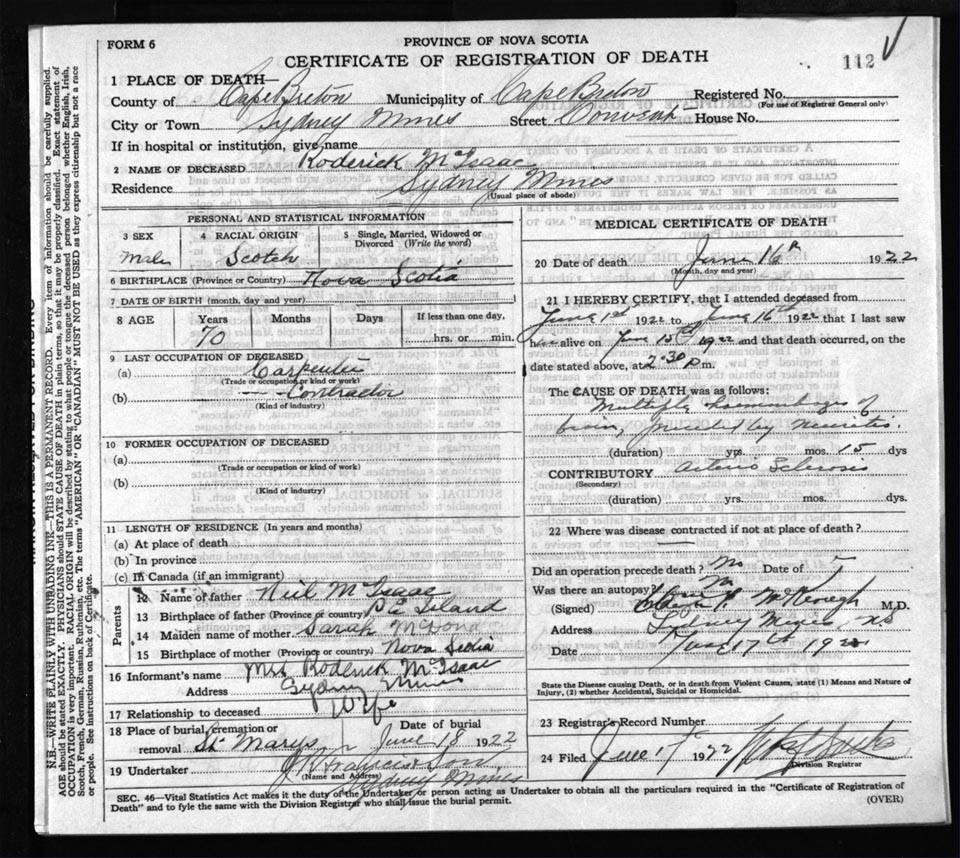 FORM 6
PROVINCE OF NOVA SCOTIA
CERTIFICATE OF REGISTRATION OF DEATH
112
1 PLACE OF DEATH—
County of Cape Breton Municipality of Cape Breton Registered No.
(For use of Registrar General only)
City or Town Sydney Mines Street Convent House No.
If in hospital or institution, give name
2 NAME OF DECEASED Roderick McIsaac
Residence Sydney Mines
(Usual place of abode)
PERSONAL AND STATISTICAL INFORMATION
3 SEX 4 RACIAL ORIGIN 5 Single, Married, Widowed or
Divorced (Write the word)
Male Scotch
6 BIRTHPLACE (Province or Country) Nova Scotia
7 DATE OF BIRTH (month, day and year)
8 AGE Years Months Days If less than one day,
70 hrs. or min.
9 LAST OCCUPATION OF DECEASED
(a) Carpenter
(Trade or occupation or kind or work)
(b) Contractor
(Kind of industry)
10 FORMER OCCUPATION OF DECEASED
(a)
(Trade or occupation or kind of work)
(b)
(Kind of industry)
11 LENGTH OF RESIDENCE (In years and months)
(a) At place of death
(b) In province
(c) In Canada (if an immigrant)
Parents
12 Name of father Neil McIsaac
13 Birthplace of father (Province or country) P.E. Island
14 Maiden name of mother Sarah
15 Birthplace of mother (Province or country) Nova Scotia
16 Informant's name Mrs Roderick McIsaac
Address Sydney Mines
17 Relationship to deceased Wife
18 Place of burial, cremation or Date of burial
removal St Marys June 18 1922
19 Undertaker J. Francis & Son
(Name and Address) Sydney Mines
MEDICAL CERTIFICATE OF DEATH
20 Date of death June 16th 1922
(Month, day and year)
21 I HEREBY CERTIFY, that I attended deceased from
June 1st 1922 to June 16th 1922 that I last saw
him alive on June 15th 1922 and that death occurred, on the
date stated above, at 2:30 p.m.
The CAUSE OF DEATH was as follows:
Multiple haemorrhages of
brain, preceded by Neuritis.
(duration) yrs. mos. 15 dys
CONTRIBUTORY Arterio Sclerosis
(Secondary)
(duration) yrs. mos. dys.
22 Where was disease contracted if not at place of death?
Did an operation precede death? No Date of
Was there an autopsy? No
(Signed) McKeough M.D.
Address Sydney Mines, NS
Date June 17th 192
State the Disease causing Death, or in death from Violent Causes, state (1) Means and Nature of
Injury, (2) whether Accidental, Suicidal or Homicidal.
23 Registrar's Record Number
24 Filed June 17 1922
Division Registrar
SEC. 46—Vital Statistics Act makes it the duty of the Undertaker or person acting as Undertaker to obtain all the particulars required in the "Certificate of Registration of
Death" and to fyle the same with the Division Registrar who shall issue the burial permit.
(OVER)
N.B.—WRITE PLAINLY WITH UNFADING INK—THIS IS A PERMANENT RECORD. Every item of information should be carefully supplied.
AGE should be stated EXACTLY. PHYSICIANS should STATE CAUSE OF DEATH in plain terms, so that it may be properly classified. Exact statement of
OCCUPATION is very important. RACIAL ORIGIN will be described by stating to what people or tongue the deceased person belonged whether English, Irish,
Scotch, French, German, Russian, Ruthenian, etc. The terms "AMERICAN" OR "CANADIAN" MUST NOT BE USED as they express citizenship but not a race
or people. See instructions on back of Certificate.